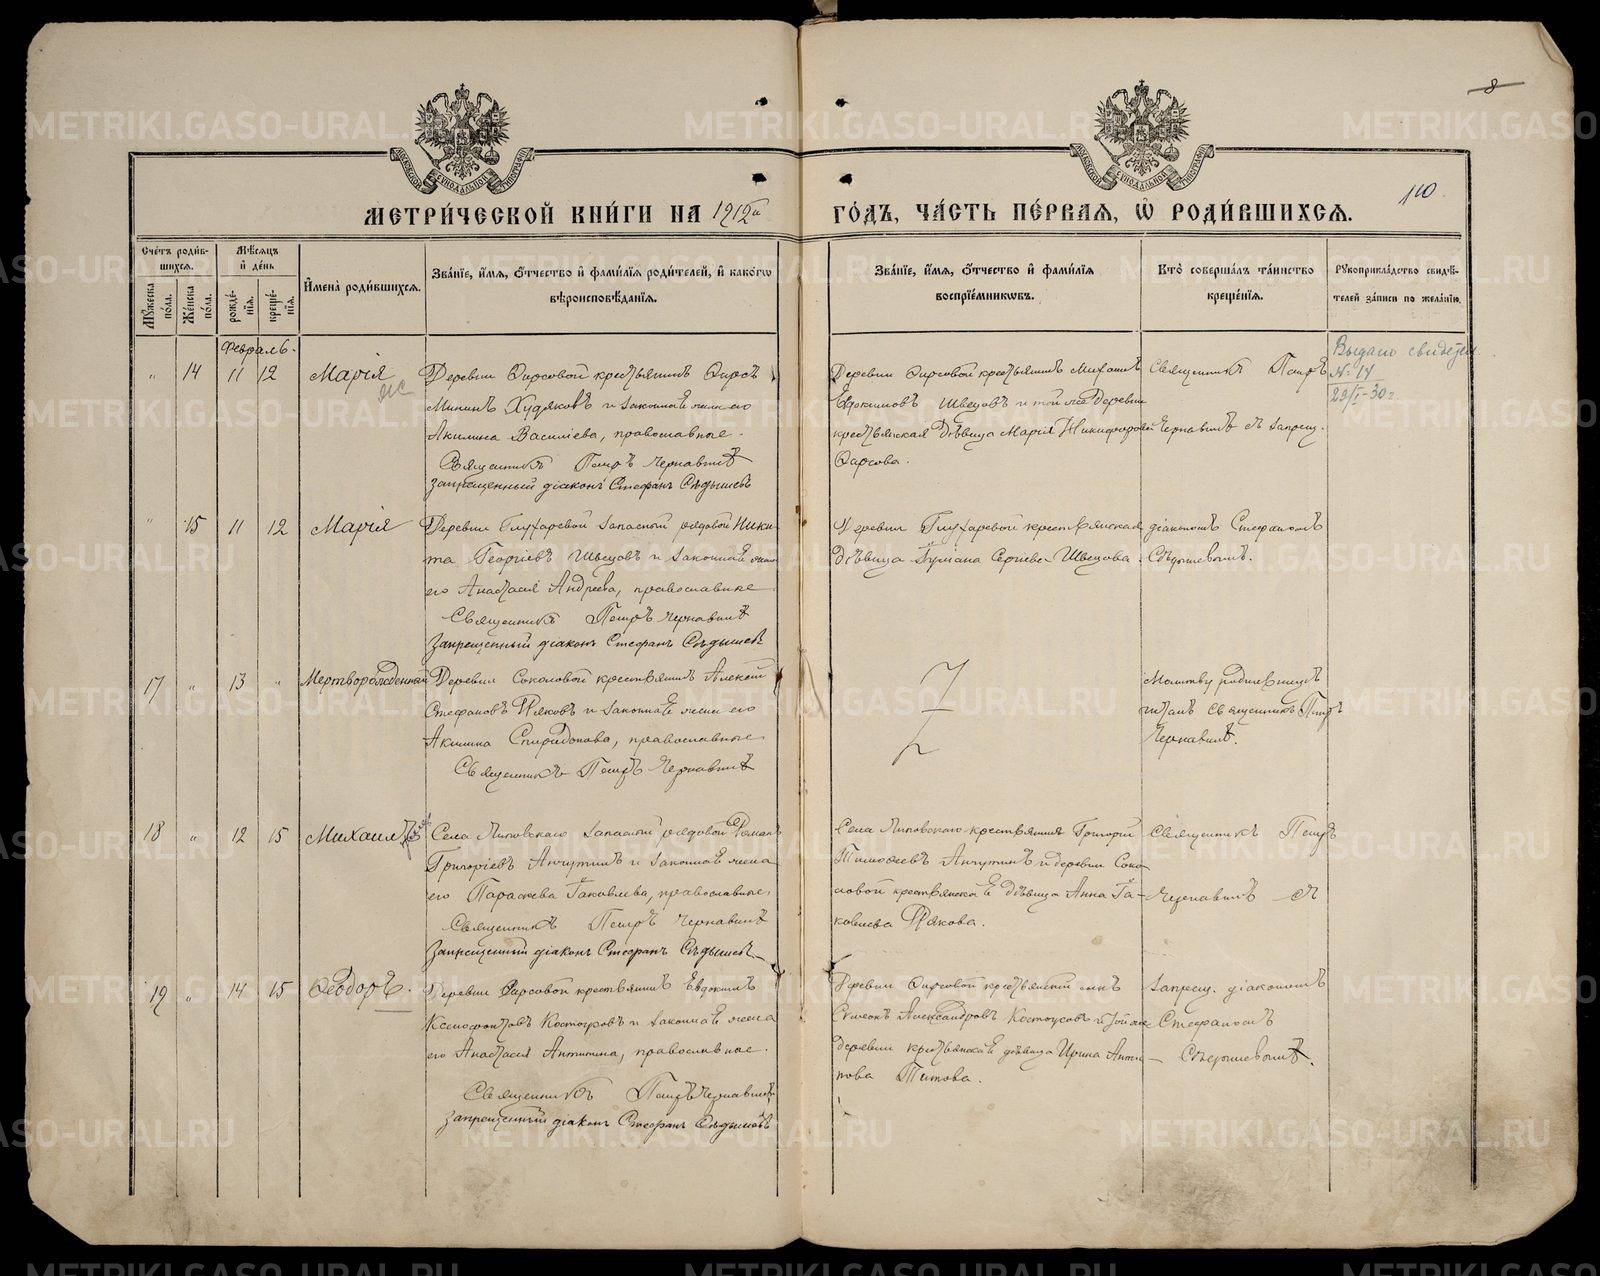 8
110.
МЕТРИ́ЧЕСКОЙ КНИ́ГИ НА 1912й ГО́ДЪ, ЧА́СТЬ ПЕ́РВАЯ, Ѡ҆ РОДИ́ВШИХСЯ.
Сче́тъ роди́в-
шихся.
Мꙋ́жеска по́ла.
Же́нска по́ла.
Мѣ́сяцъ
и҆ де́нь
рожде́-
нїя.
креще́-
нїя.
И҆мена̀ роди́вшихся.
Зва́нїе, и҆́мя, ѻ҆́тчество и҆ фами́лїя роди́телей, и҆ како́гѡ
вѣроисповѣ́данїя.
Зва́нїе, и҆́мя, ѻ҆́тчество и҆ фами́лїя
воспрїе́мникѡвъ.
Кто̀ соверша́лъ та́инство
креще́нїя.
Рꙋкоприкла́дство свидѣ́-
телей за́писи по жела́нїю.
Февраль.
" 14 11 12 Марія
Деревни Фирсовой крестьянинъ Фирсъ
Мининъ Худяковъ и законная жена его
Акилина Васильева, православные.
Священникъ Петръ Чернавинъ
Запрещенный діаконъ Стефанъ Сѣдышевъ
Деревни Фирсовой крестьянинъ Михаилъ
Евдокимовъ Швецовъ и той же деревни
крестьянская дѣвица Марія Никифорова
Фирсова.
Священникъ Петръ
Чернавинъ съ запрещ.
Выдано свидетел
№ 14
29/I-30г.
" 15 11 12 Марія
Деревни Глухаревой запасный рядовой Ники-
та Георгіевъ Швецовъ и законная жена
его Анастасія Андреева, православные
Священникъ Петръ Чернавинъ
Запрещенный діаконъ Стефанъ Сѣдышевъ
Деревни Глухаревой крестьянская
дѣвица Іуліана Сергіева Швецова.
діакономъ Стефаномъ
Сѣдышевымъ.
17 " 13 " Мертворожденный
Деревни Соколовой крестьянинъ Алексій
Стефановъ Ряковъ и законная жена его
Акилина Спиридонова, православные
Священникъ Петръ Чернавинъ
Молитву родильницѣ
читалъ священникъ Петръ
Чернавинъ.
18 " 12 15 Михаилъ
Села Липовскаго запасный рядовой Романъ
Григоріевъ Анчутинъ и законная жена
его Параскева Іаковлева, православные,
Священникъ Петръ Чернавинъ
Запрещенный діаконъ Стефанъ Сѣдышевъ
Села Липовскаго крестьянинъ Григорій
Тимофеевъ Анчутинъ и деревни Соко-
ловой крестьянская дѣвица Анна Іа-
ковлева Рякова.
Священникъ Петръ
Чернавинъ съ
19 " 14 15 Ѳеодоръ.
Деревни Фирсовой крестьянинъ Евдокимъ
Ксенофонтовъ Костоусовъ и законная жена
его Анастасія Антипина, православные.
Священникъ Петръ Чернавинъ
Запрещенный діаконъ Стефанъ Сѣдышевъ
Деревни Фирсовой крестьянскій сынъ
Симеонъ Александровъ Костоусовъ и той же
деревни крестьянская дѣвица Ирина Анти-
пова Титова.
запрещ. діакономъ
Стефаномъ
Сѣдышевымъ.
METRIKI.GASO-URAL.RU